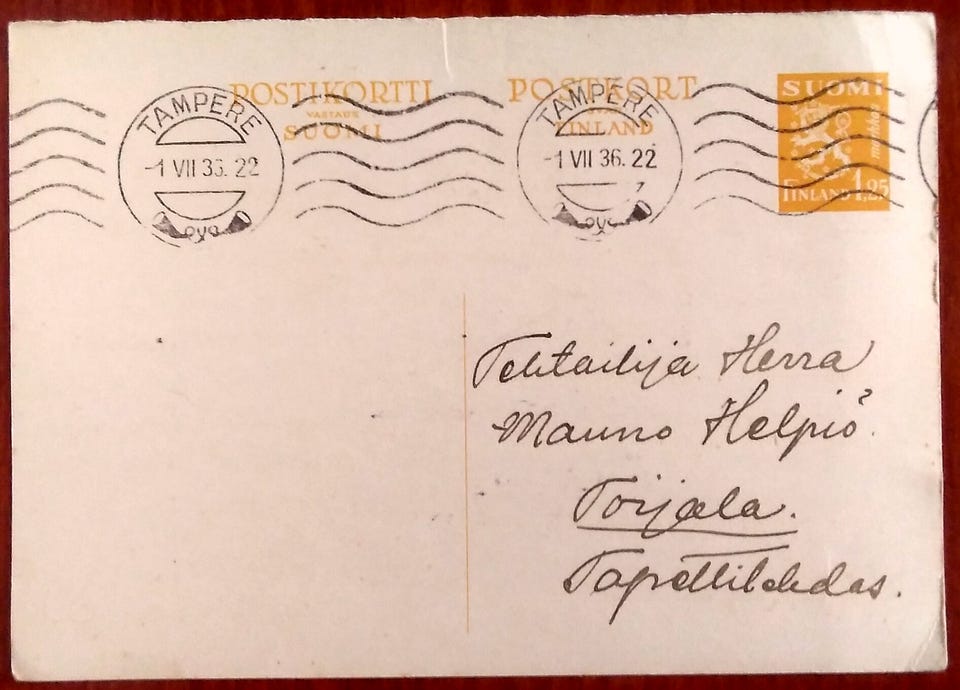 POSTIKORTTI POSTKORT
VASTAUS
SUOMI FINLAND
SUOMI
markkaa
FINLAND 1,25
TAMPERE
-1 VII 36. 22
TAMPERE
-1 VII 36. 22
Tehtailija Herra
Mauno Helpiö.
Toijala.
Tapettitehdas.